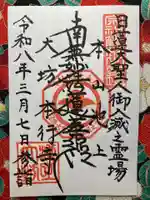 日蓮大聖人御滅之霊場
本山池上
南無妙法蓮華経
大坊本行寺
令和八年三月七日参詣